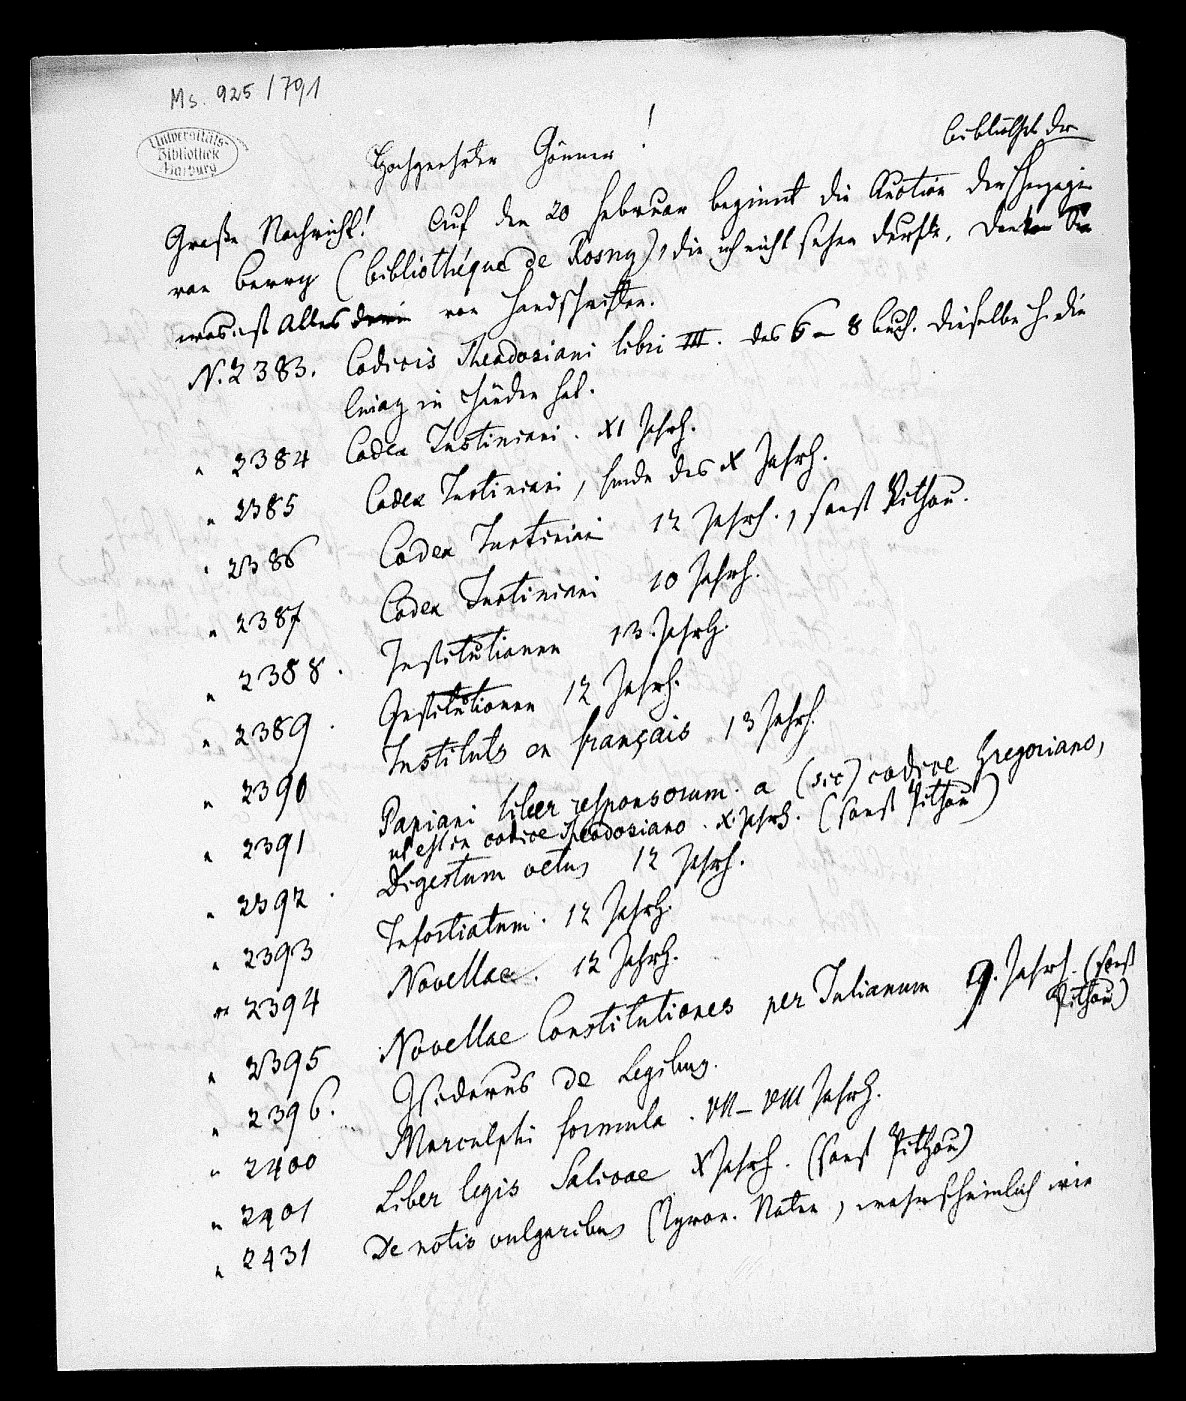 Ms. 925/791
Universitäts-
Bibliothek
Marburg
Hochgeehrter Gönner!
Große Nachricht! Auf den 20 Februar beginnt die Auction der Bibliothek der Herzogin
von Berry (bibliothèque de Rosny), die ich nicht sehen durfte. Denken Sie
was ist Alles darin von Handschriften.
N. 2383. Codicis Theodosiani libri III. des 6–8 Buch. Dieselbe H. die
in Händen hat.
" 2384 Codex Justiniani. XI Jahrh.
" 2385 Codex Justiniani, Ende des X Jahrh.
" 2386 Codex Justiniani 12 Jahrh., sonst Pithou.
" 2387 Codex Justiniani 10 Jahrh.
" 2388. Institutionen 13. Jahrh.
" 2389. Institutionen 12 Jahrh.
" 2390 Instituts en français 13 Jahrh.
" 2391 Papiani liber responsorum. a (sic) codice Gregoriano,
ut est in codice Theodosiano. X Jahrh. (sonst Pithou)
" 2392. Digestum vetus 12 Jahrh.
" 2393 Infortiatum. 12 Jahrh.
" 2394 Novellae. 12 Jahrh.
" 2395 Novellae Constitutiones per Julianum 9. Jahrh. (sonst
Pithou)
" 2396. Isidorus de Legibus.
" 2400 Marculphi formula. VII–VIII Jahrh.
" 2401 Liber legis Salicae X Jahrh. (sonst Pithou)
" 2431 De notis vulgaribus (Tyron. Noten, wahrscheinlich wie